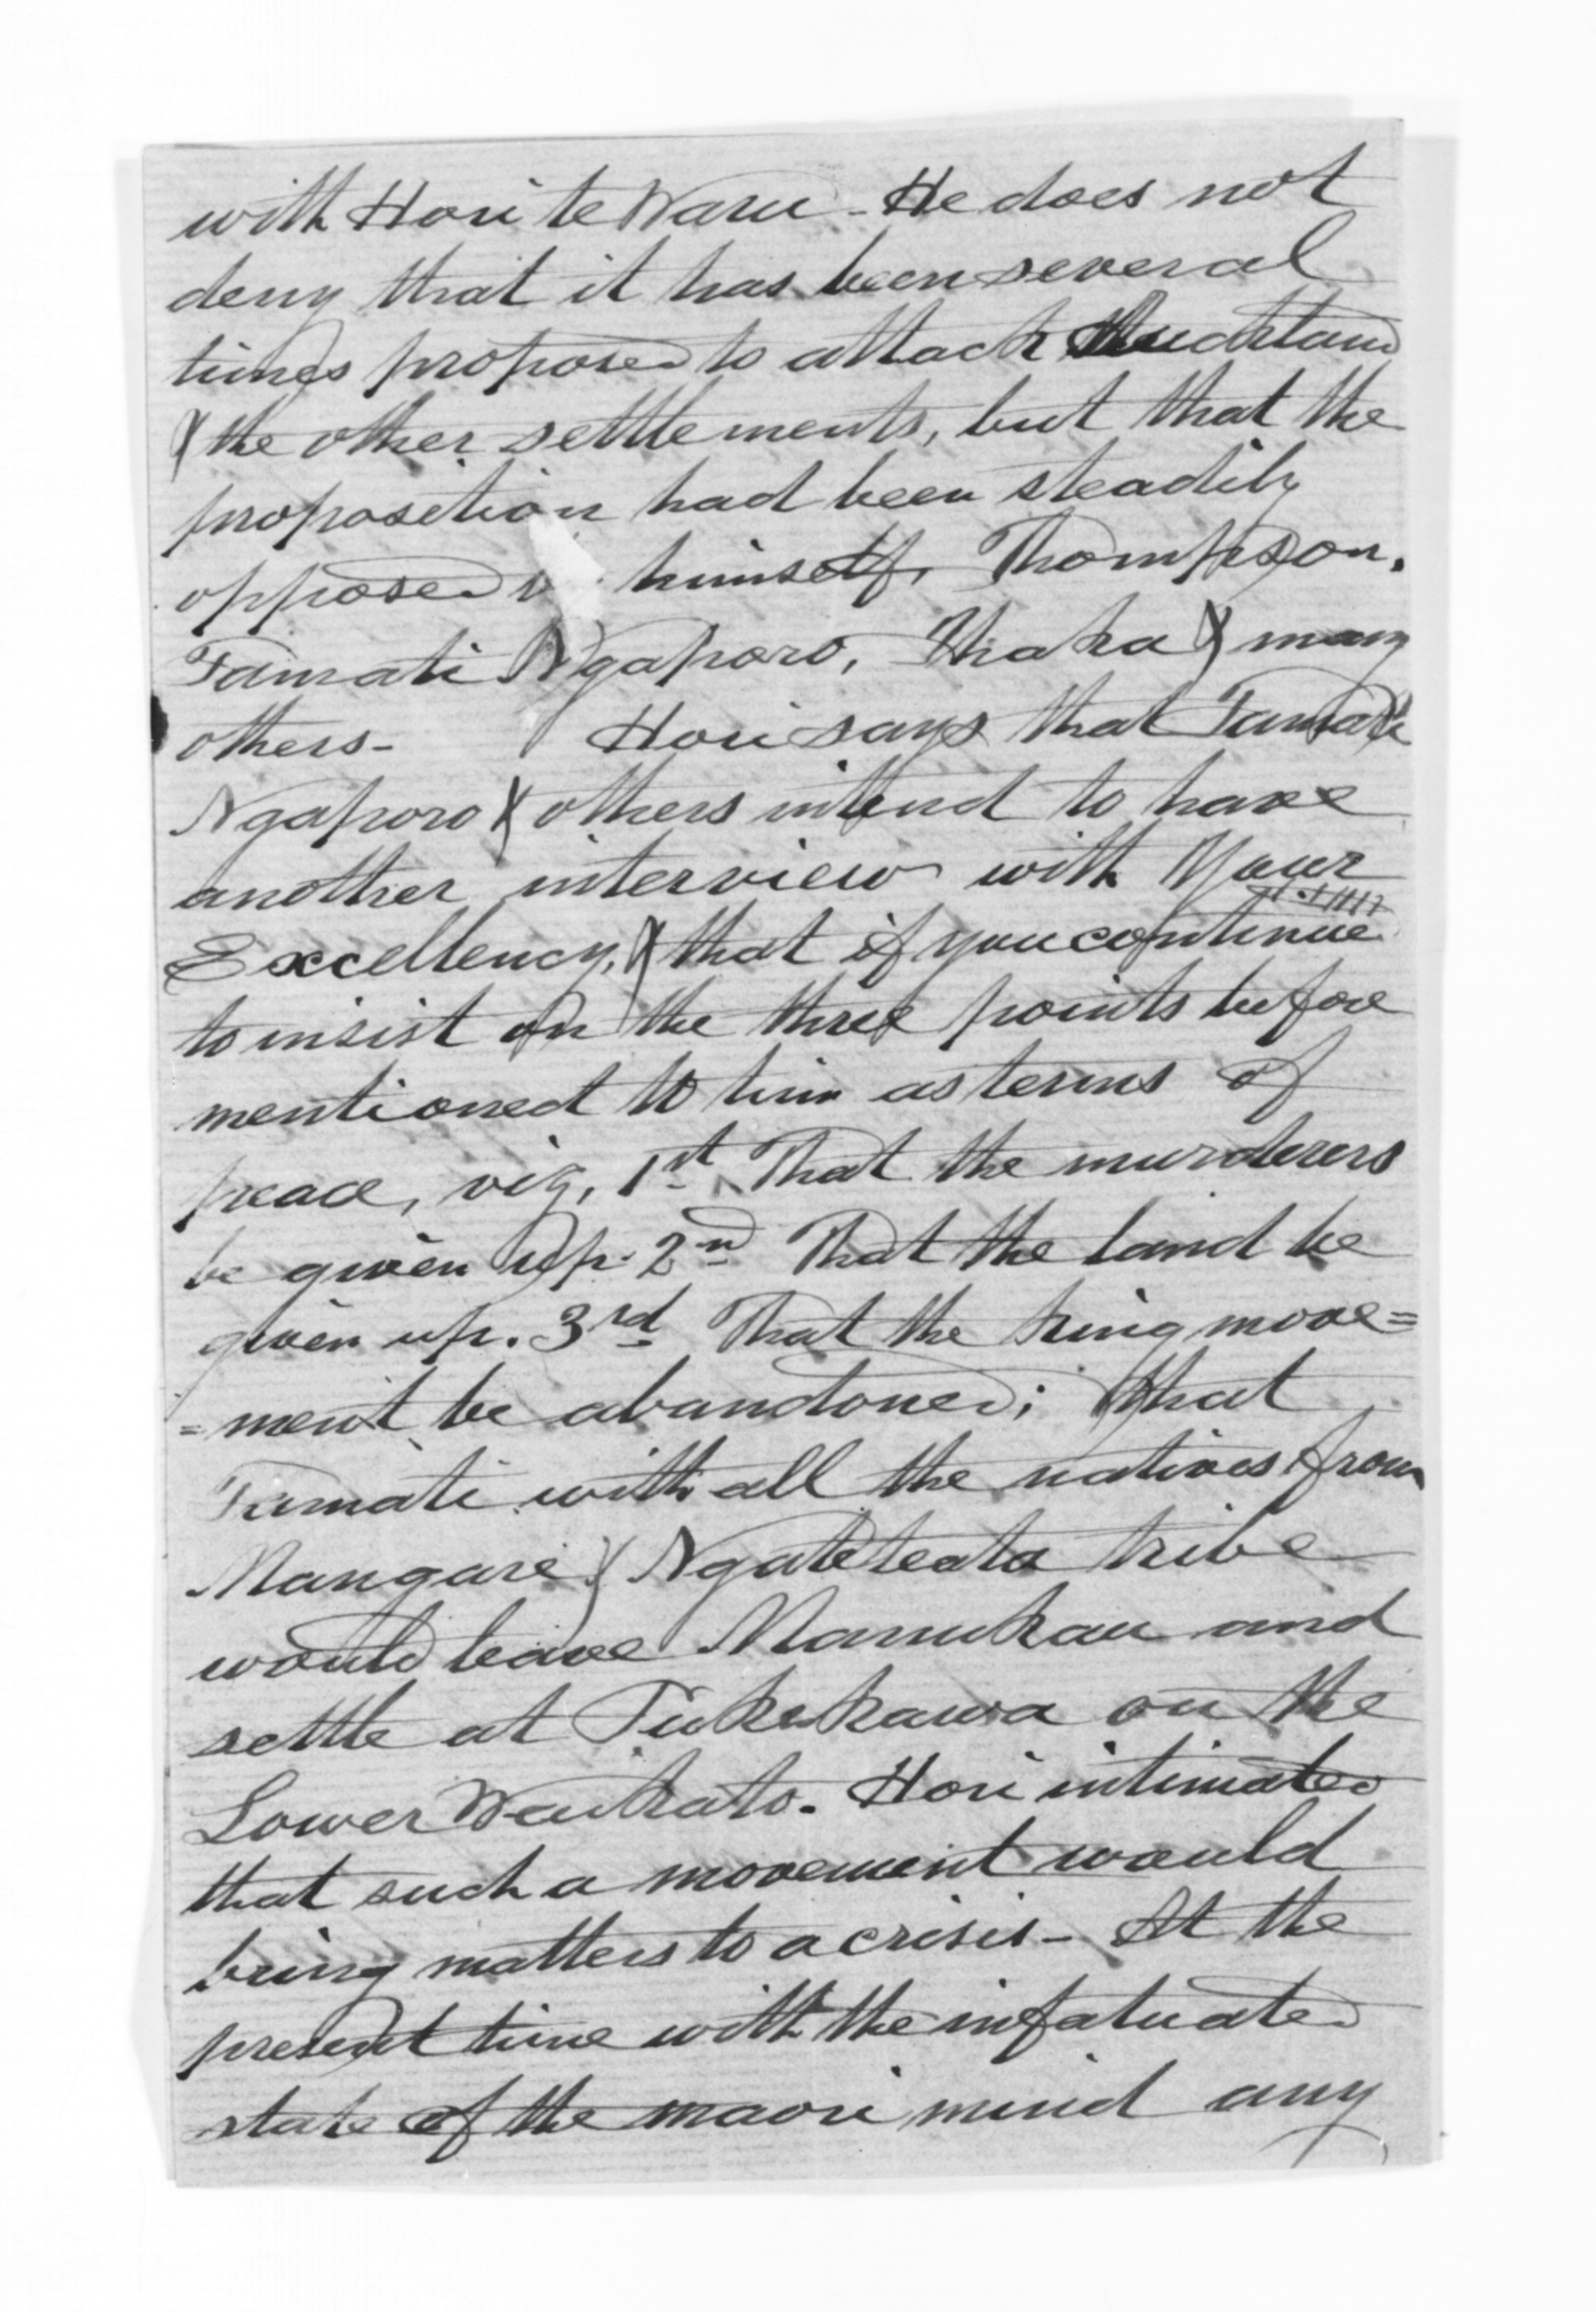 with Hori te Waru - He does not
deny that it has been several
times proposed to attack Auckland
& the other settlements, but that the
proposition had been steadily
opposed himself, Thompson.
Tamati Ngaporo, Ihaka & many
others - Hori says that Tamati
Ngaporo & others intend to have
another interview with Your
Excellency, & that if you continue
to insist on the three points before
mentioned to him as terms of
peace, viz, 1st That the murderers
be given up. 2nd That the land be
given up. 3rd That the king move=
=ment be abandoned; that
Tamati with all the natives from
Mangare & Ngateteata tribe
would leave Manukau and
settle at Pukekawa on the
Lower Waikato. Hori intimated
that such a movement would
bring matters to a crisis - At the
present time with the infatuated
state of the maori mind any